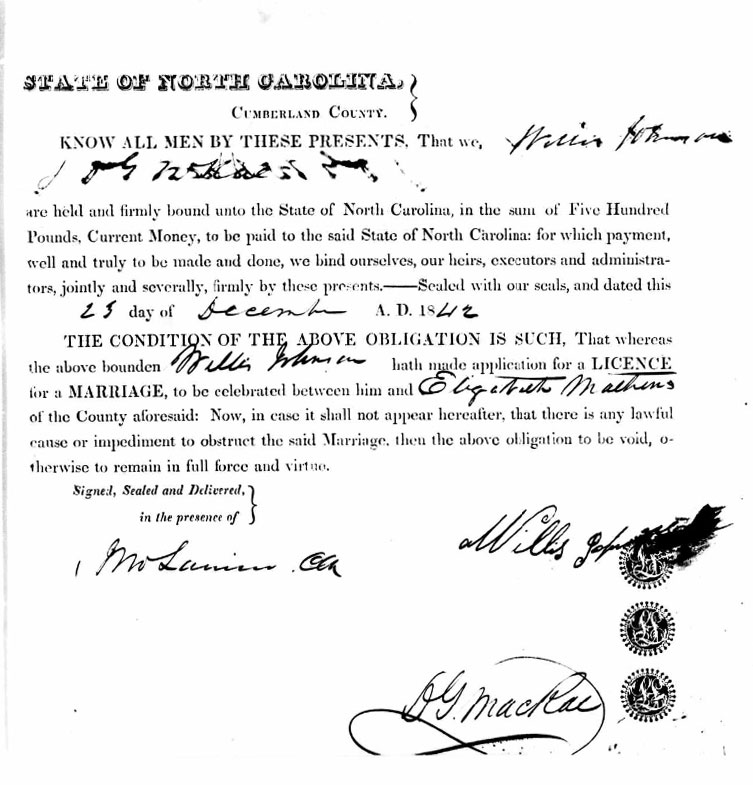 STATE OF NORTH CAROLINA,
CUMBERLAND COUNTY.
KNOW ALL MEN BY THESE PRESENTS, That we, Willis Johnson
D G
are held and firmly bound unto the State of North Carolina, in the sum of Five Hundred
Pounds, Current Money, to be paid to the said State of North Carolina: for which payment,
well and truly to be made and done, we bind ourselves, our heirs, executors and administra-
tors, jointly and severally, firmly by these presents.——Sealed with our seals, and dated this
23 day of December A. D. 1842
THE CONDITION OF THE ABOVE OBLIGATION IS SUCH, That whereas
the above bounden Willis Johnson hath made application for a LICENCE
for a MARRIAGE, to be celebrated between him and Elizabeth Mathews
of the County aforesaid: Now, in case it shall not appear hereafter, that there is any lawful
cause or impediment to obstruct the said Marriage, then the above obligation to be void, o-
therwise to remain in full force and virtue.
Signed, Sealed and Delivered,
in the presence of
Willis
D G. MacRae